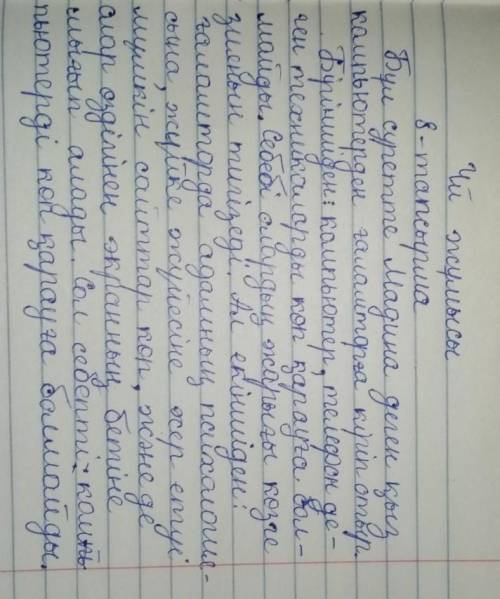 Үй жұмысы
8-тапсырма
Бұл суретте Мадина деген қыз
компьютерден ғаламторға кіріп отыр.
Біріншіден: компьютер, телефон де-
ген техникаларды көп қарауға бол-
майды. Себебі олардың жарығы көзге
зиянын тигізеді. Ал екіншіден:
ғаламторда адамның психалогия-
сына, жүйке жүйесіне әсер етуі
мүмкін сайттар көп, және де
олар өздігінен экранның бетіне
шығып алады. Сол себепті компь
пьютерді көп қарауға болмайды.